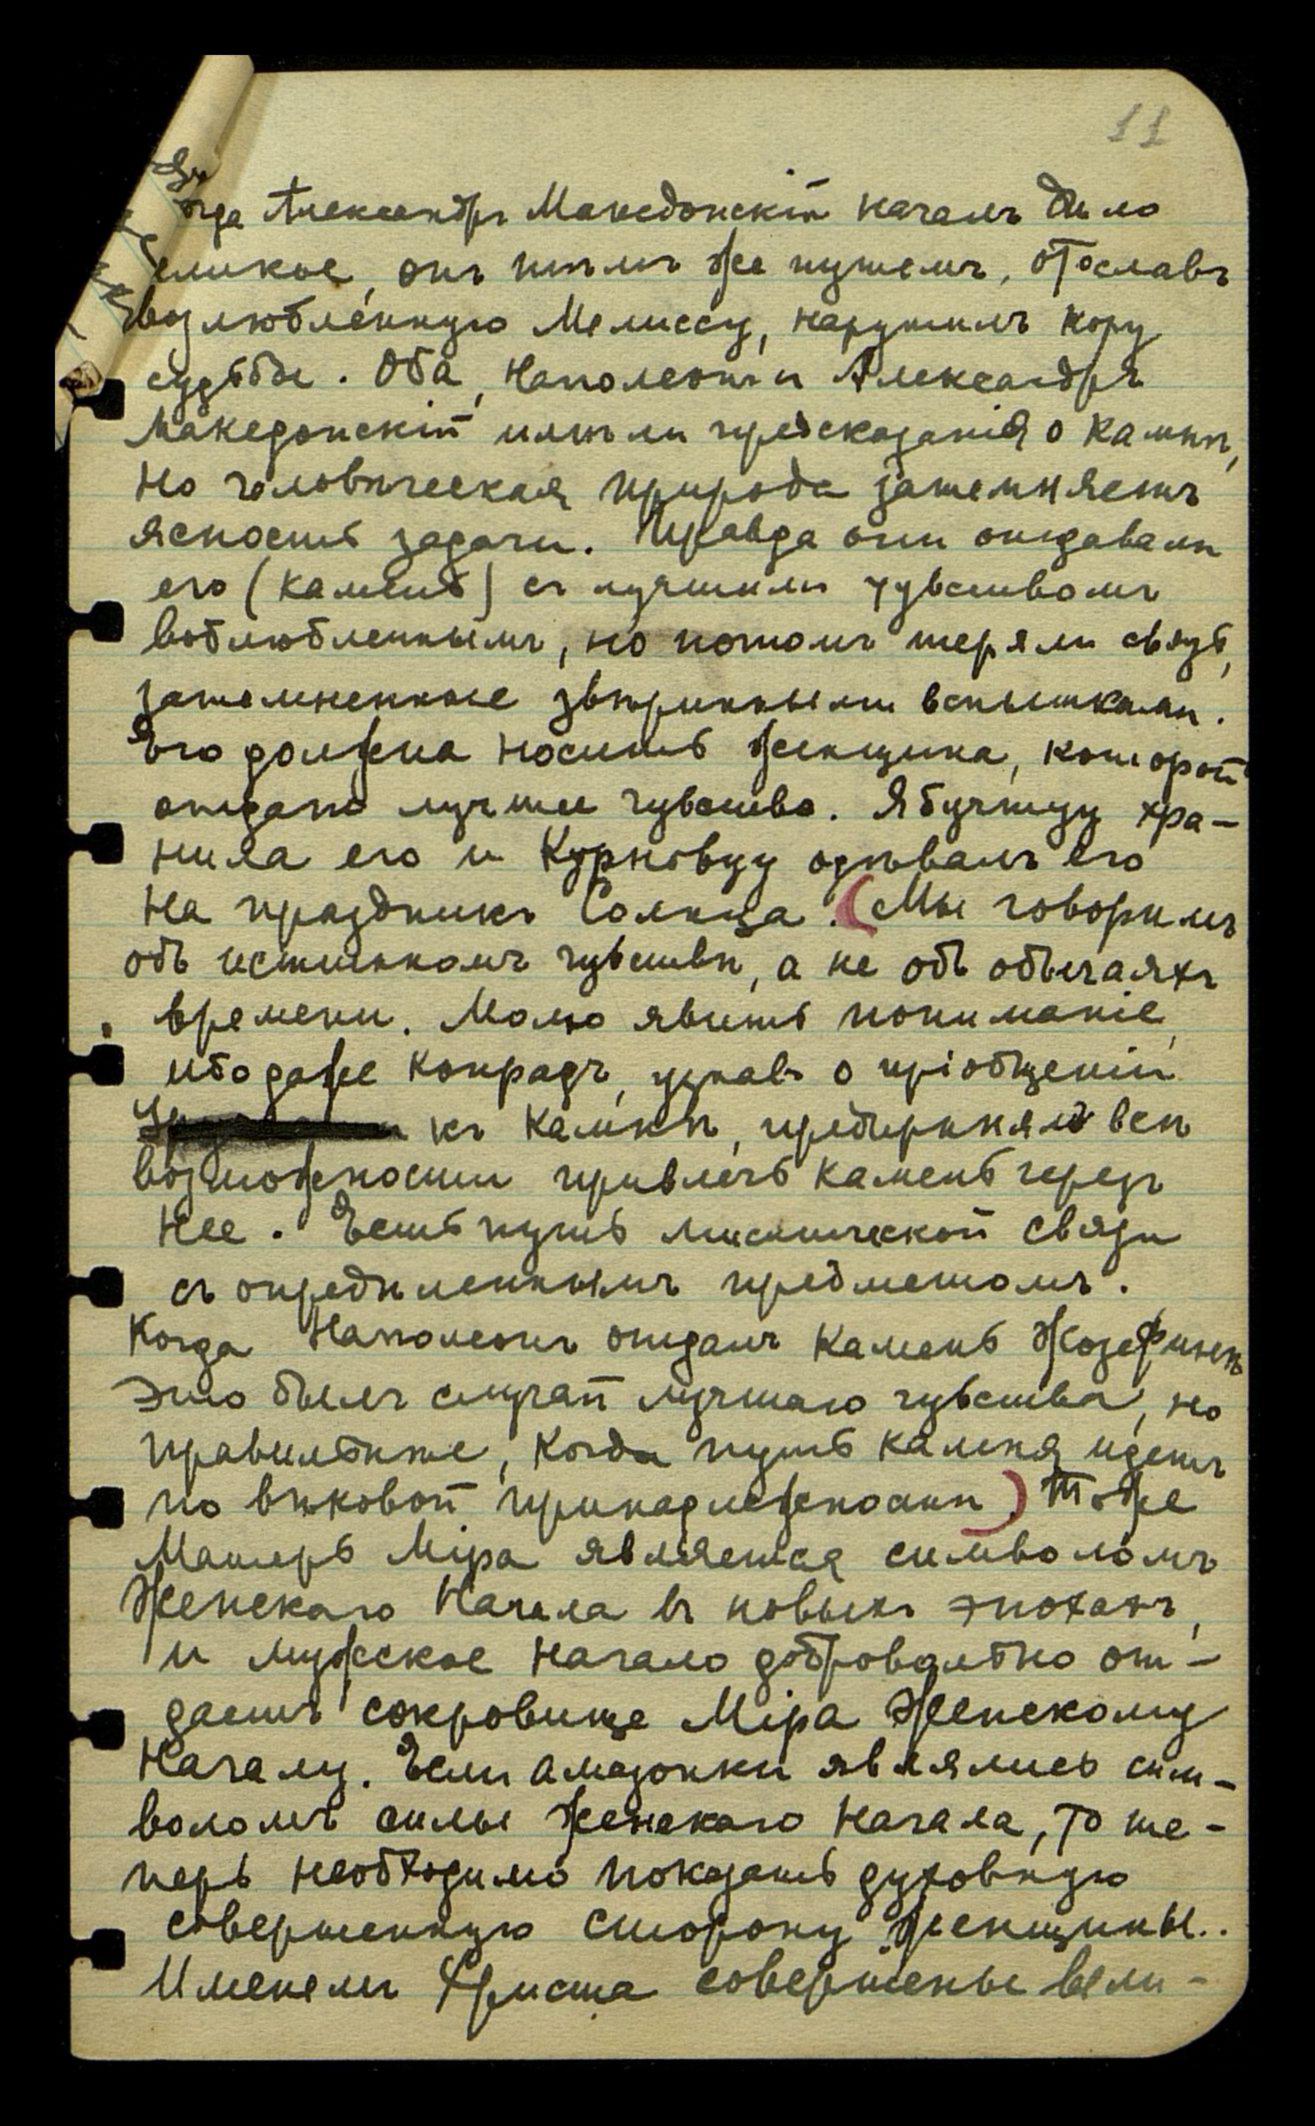 11
огда Александръ Македонскій началъ дѣло
великое, онъ тѣмъ же путемъ, отославъ
возлюбленную Мелиссу, нарушилъ кору
судьбы. Оба, Наполеонъ и Александръ
Македонскій имѣли предсказанія о Камнѣ,
но человѣческая природа затемняетъ
ясность задачи. Правда они отдавали
его (камень) съ лучшимъ чувствомъ
воблюбленнымъ, но потомъ теряли связь,
затемненные звѣринными вспышками.
Его должна носить женщина, которой
отдано лучшее чувство. Ябучтуу хра-
нила его и Курновуу одѣвалъ его
на праздникъ Солнца. (Мы говоримъ
объ истинномъ чувствѣ, а не объ обычаяхъ
времени. Молю явить пониманіе,
ибо даже Конрадъ, узнавъ о пріобщеніи
къ Камнѣ, предпринялъ всѣ
возможности привлечь камень черезъ
нее. Есть путь мистической связи
съ опредѣленнымъ предметомъ.
Когда Наполеонъ отдалъ Камень Жозефинѣ
это былъ случай лучшаго чувства, но
правильнѣе, когда путь камня идетъ
по вѣковой принадлежности.) Тоже
Матерь Міра является символомъ
Женскаго Начала въ новыхъ эпохахъ,
и мужское Начало добровольно от-
даетъ сокровище Міра Женскому
Началу. Если амазонки являлись сим-
воломъ силы женскаго Начала, то те-
перь необходимо показать духовную
совершенную сторону женщины..
Именемъ Христа совершены вели-